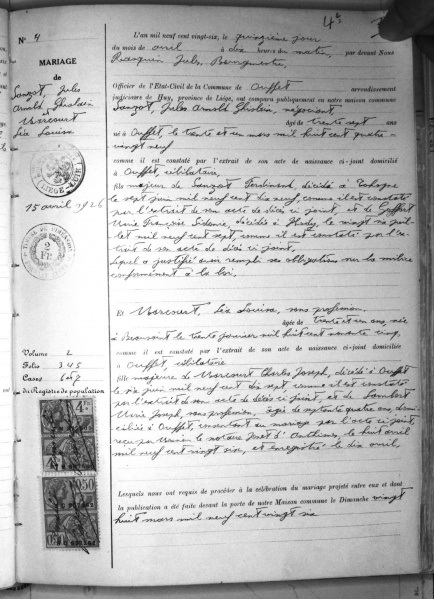 4
N° 4
MARIAGE
de
Sanzot, Jules
Arnold Ghislain
et
Marcourt
Léa Louisa
15 avril 1926
2
FR
Volume 2
Folio 345
Cases 6 et 7
du Registre de population
L'an mil neuf cent vingt-six, le quinzième jour
du mois de avril à dix heures du matin, par devant Nous
Jules, Bourgmestre,
Officier de l'Etat-Civil de la Commune de Ouffet arrondissement
judiciaire de Huy, province de Liége, ont comparu publiquement en notre maison commune
Sanzot, Jules Arnold Ghislain, négociant
âgé de trente sept ans
né à Ouffet, le trente et un mars mil huit cent quatre-
vingt neuf
comme il est constaté par l'extrait de son acte de naissance ci-joint domicilié
à Ouffet, célibataire,
fils majeur de Sanzot Ferdinand, décédé à
le sept juin mil neuf cent dix neuf, comme il est constaté
par l'extrait de son acte de décès ci joint, et de
Marie Françoise, décédée à le vingt six juil-
let mil neuf cent sept, comme il est constaté par l'ex-
trait de son acte de décès ci joint.
Lequel a justifié avoir rempli ses obligations sur la milice
conformément à la loi.
Et Marcourt, Léa Louisa, sans profession,
âgée de trente et un ans, née
à le trente janvier mil huit cent nonante cinq,
comme il est constaté par l'extrait de son acte de naissance ci-joint domiciliée
à Ouffet, célibataire
fille majeure de Marcourt Charles Joseph, décédé à Ouffet
le six juin mil neuf cent dix sept comme il est constaté
par l'extrait de son acte de décès ci joint, et de Lambert
Marie Joseph, sans profession, âgée de septante quatre ans, domi-
ciliée à Ouffet, consentant au mariage par l'acte ci joint,
reçu par le notaire d'Anthisnes, le huit avril
mil neuf cent vingt six, et enregistré le dix avril,
Lesquels nous ont requis de procéder à la célébration du mariage projeté entre eux et dont
la publication a été faite devant la porte de notre Maison commune le Dimanche vingt
huit mars mil neuf cent vingt six